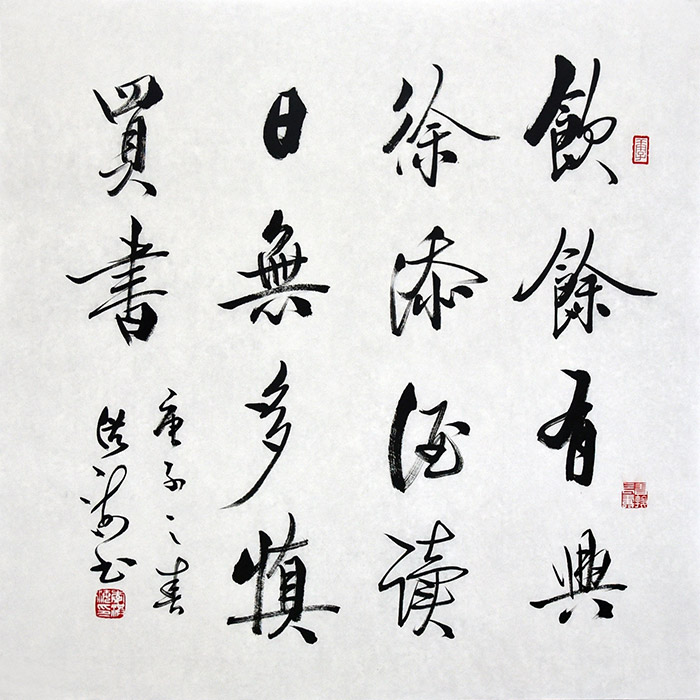 飲餘有興
徐添酒讀
日無多慎
買書
庚子之春
洪海书